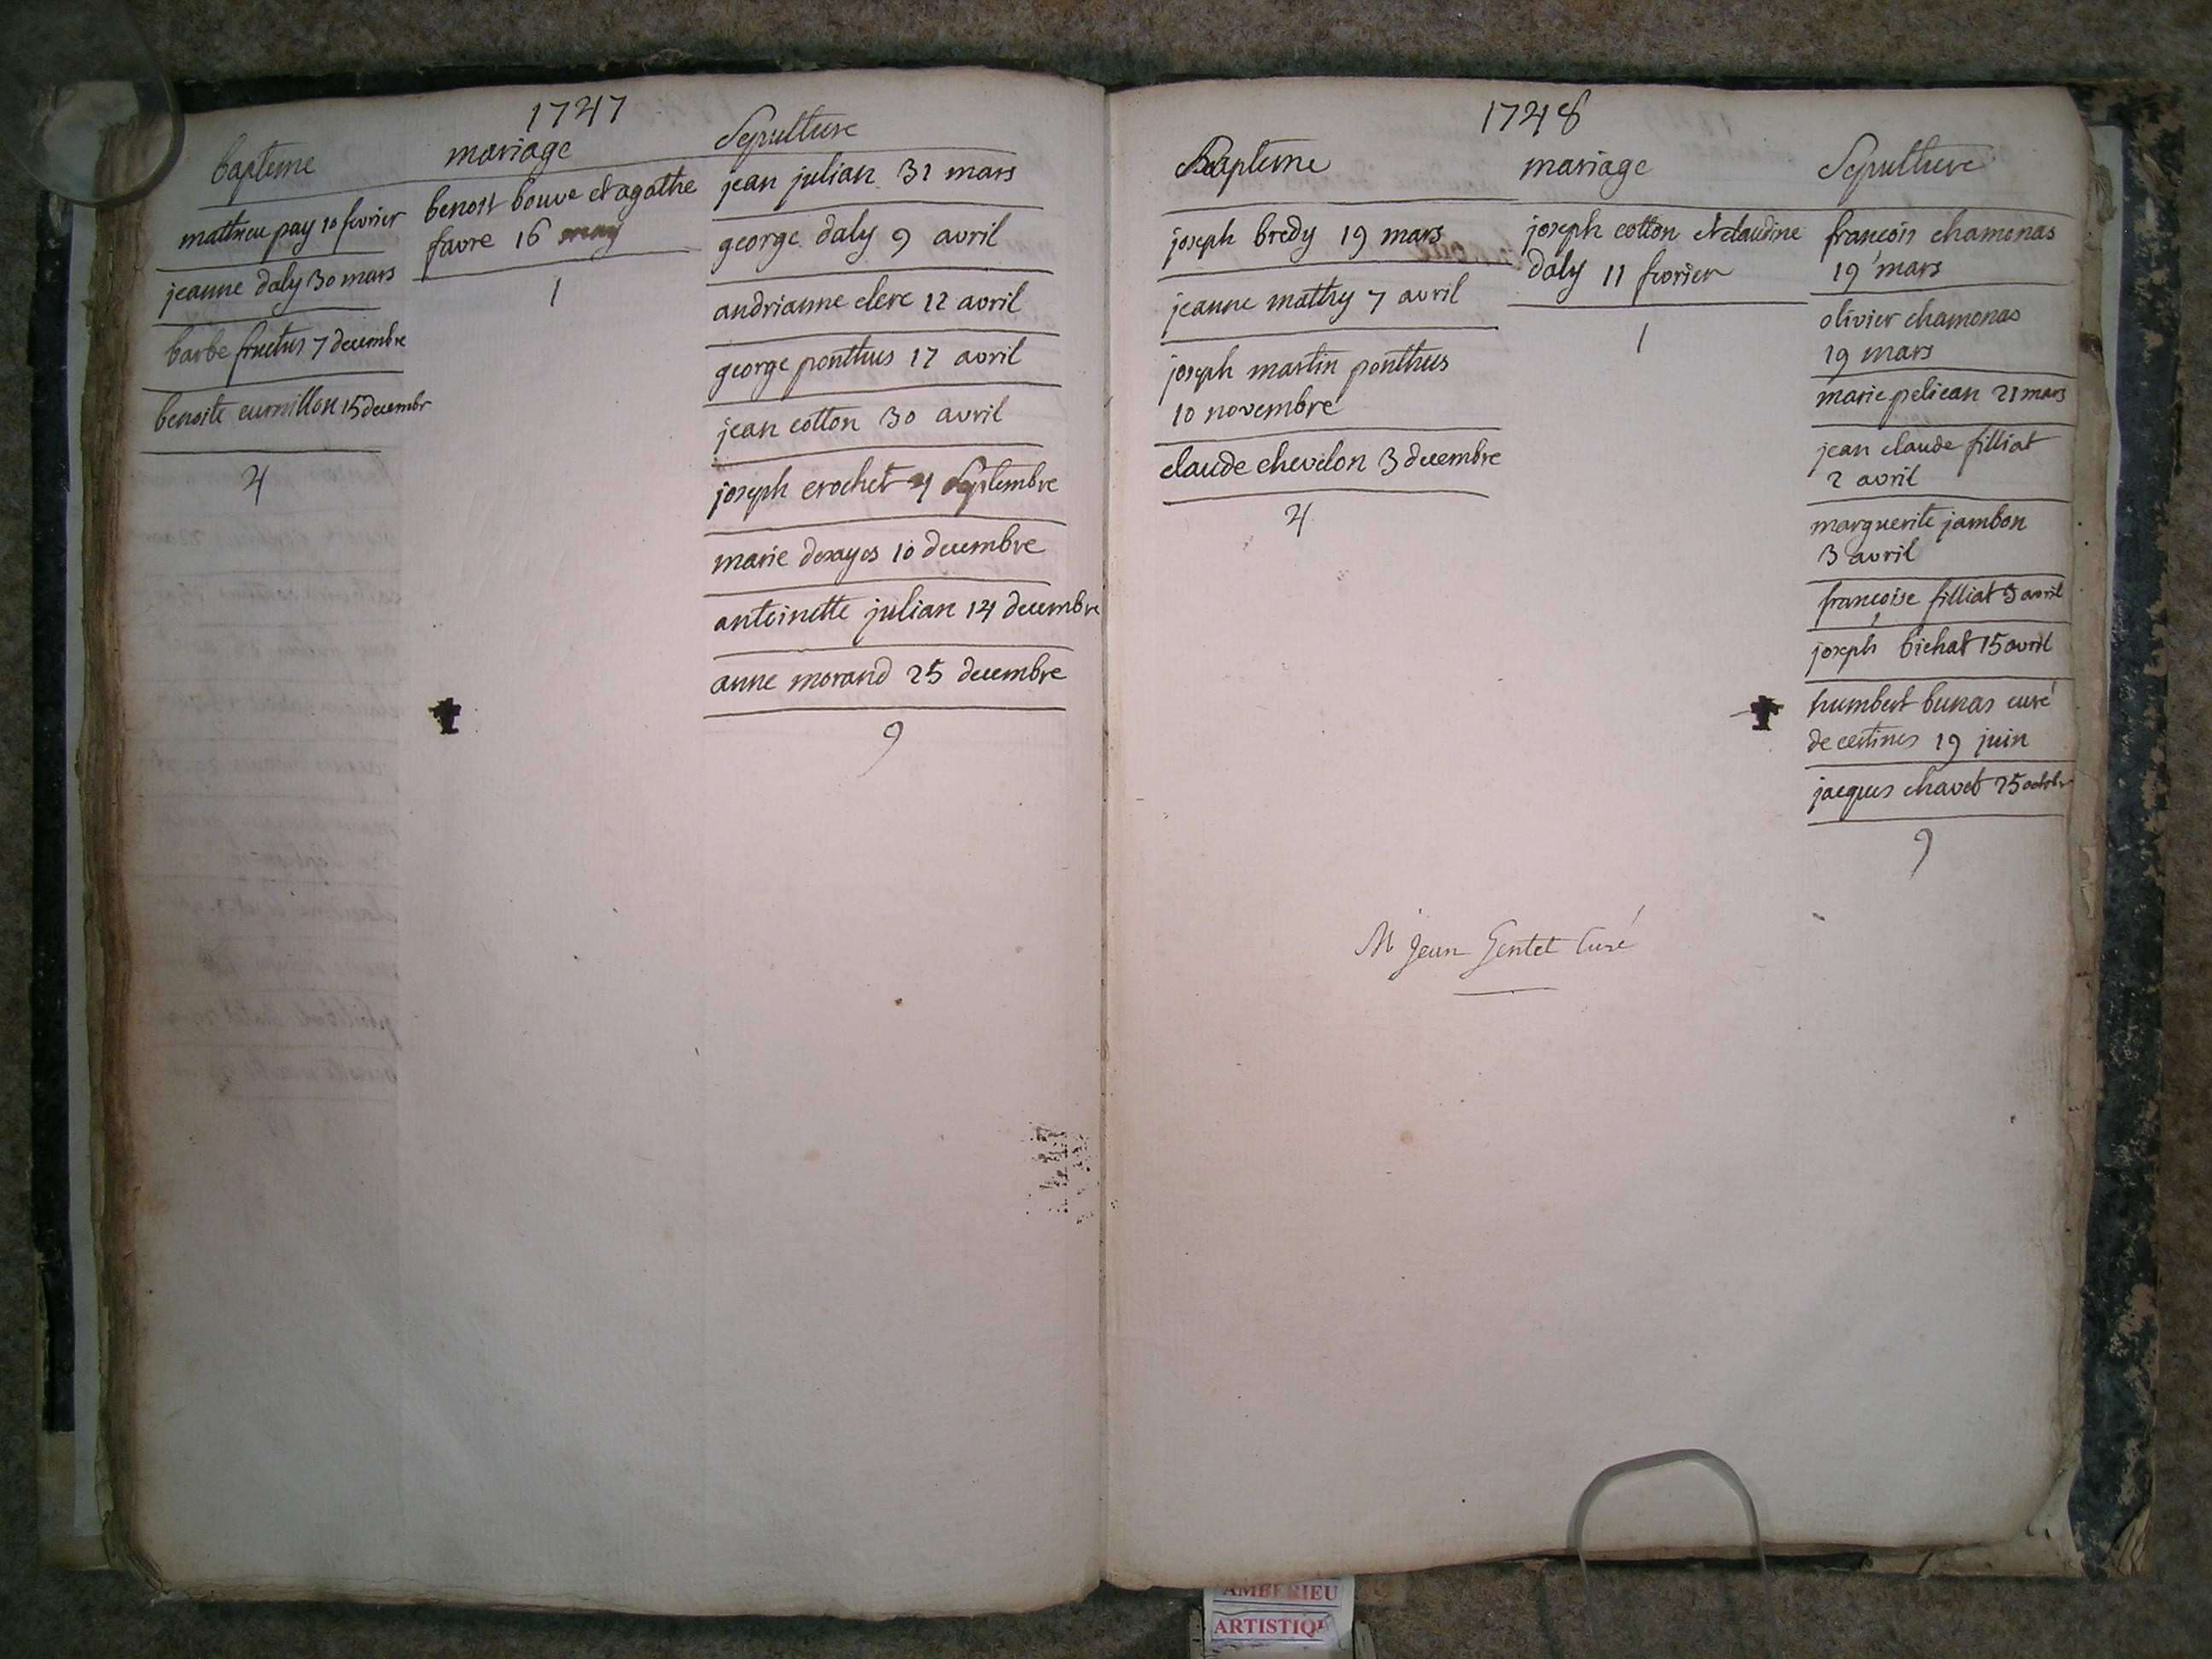 1747
bapteme
mathieu pay 10 fevrier
jeanne daly 30 mars
barbe fructus 7 decembre
benoite curnillon 15 decembr
4
mariage
benoit bouve et agathe
favre 16 may
1
Sepulture
jean julian 31 mars
george daly 9 avril
andrianne clerc 12 avril
george ponthus 17 avril
jean cotton 30 avril
joseph crochet 4 Septembre
marie desayes 10 decembre
antoinette julian 14 decembre
anne morand 25 decembre
9
1748
Bapteme
joseph bredy 19 mars
jeanne mathy 7 avril
joseph martin ponthus
10 novembre
claude chevelon 3 decembre
4
mariage
joseph cotton et claudine
daly 11 fevrier
1
Sepulture
francois chamonas
19 mars
olivier chamonas
19 mars
marie pelican 21 mars
jean claude filliat
2 avril
marguerite jambon
3 avril
françoise filliat 9 avril
joseph bichat 15 avril
humbert bunas curé
de certines 19 juin
jacques chavet 25 octobr
9
M Jean Gentet Curé
AMBERIEU
ARTISTIQ